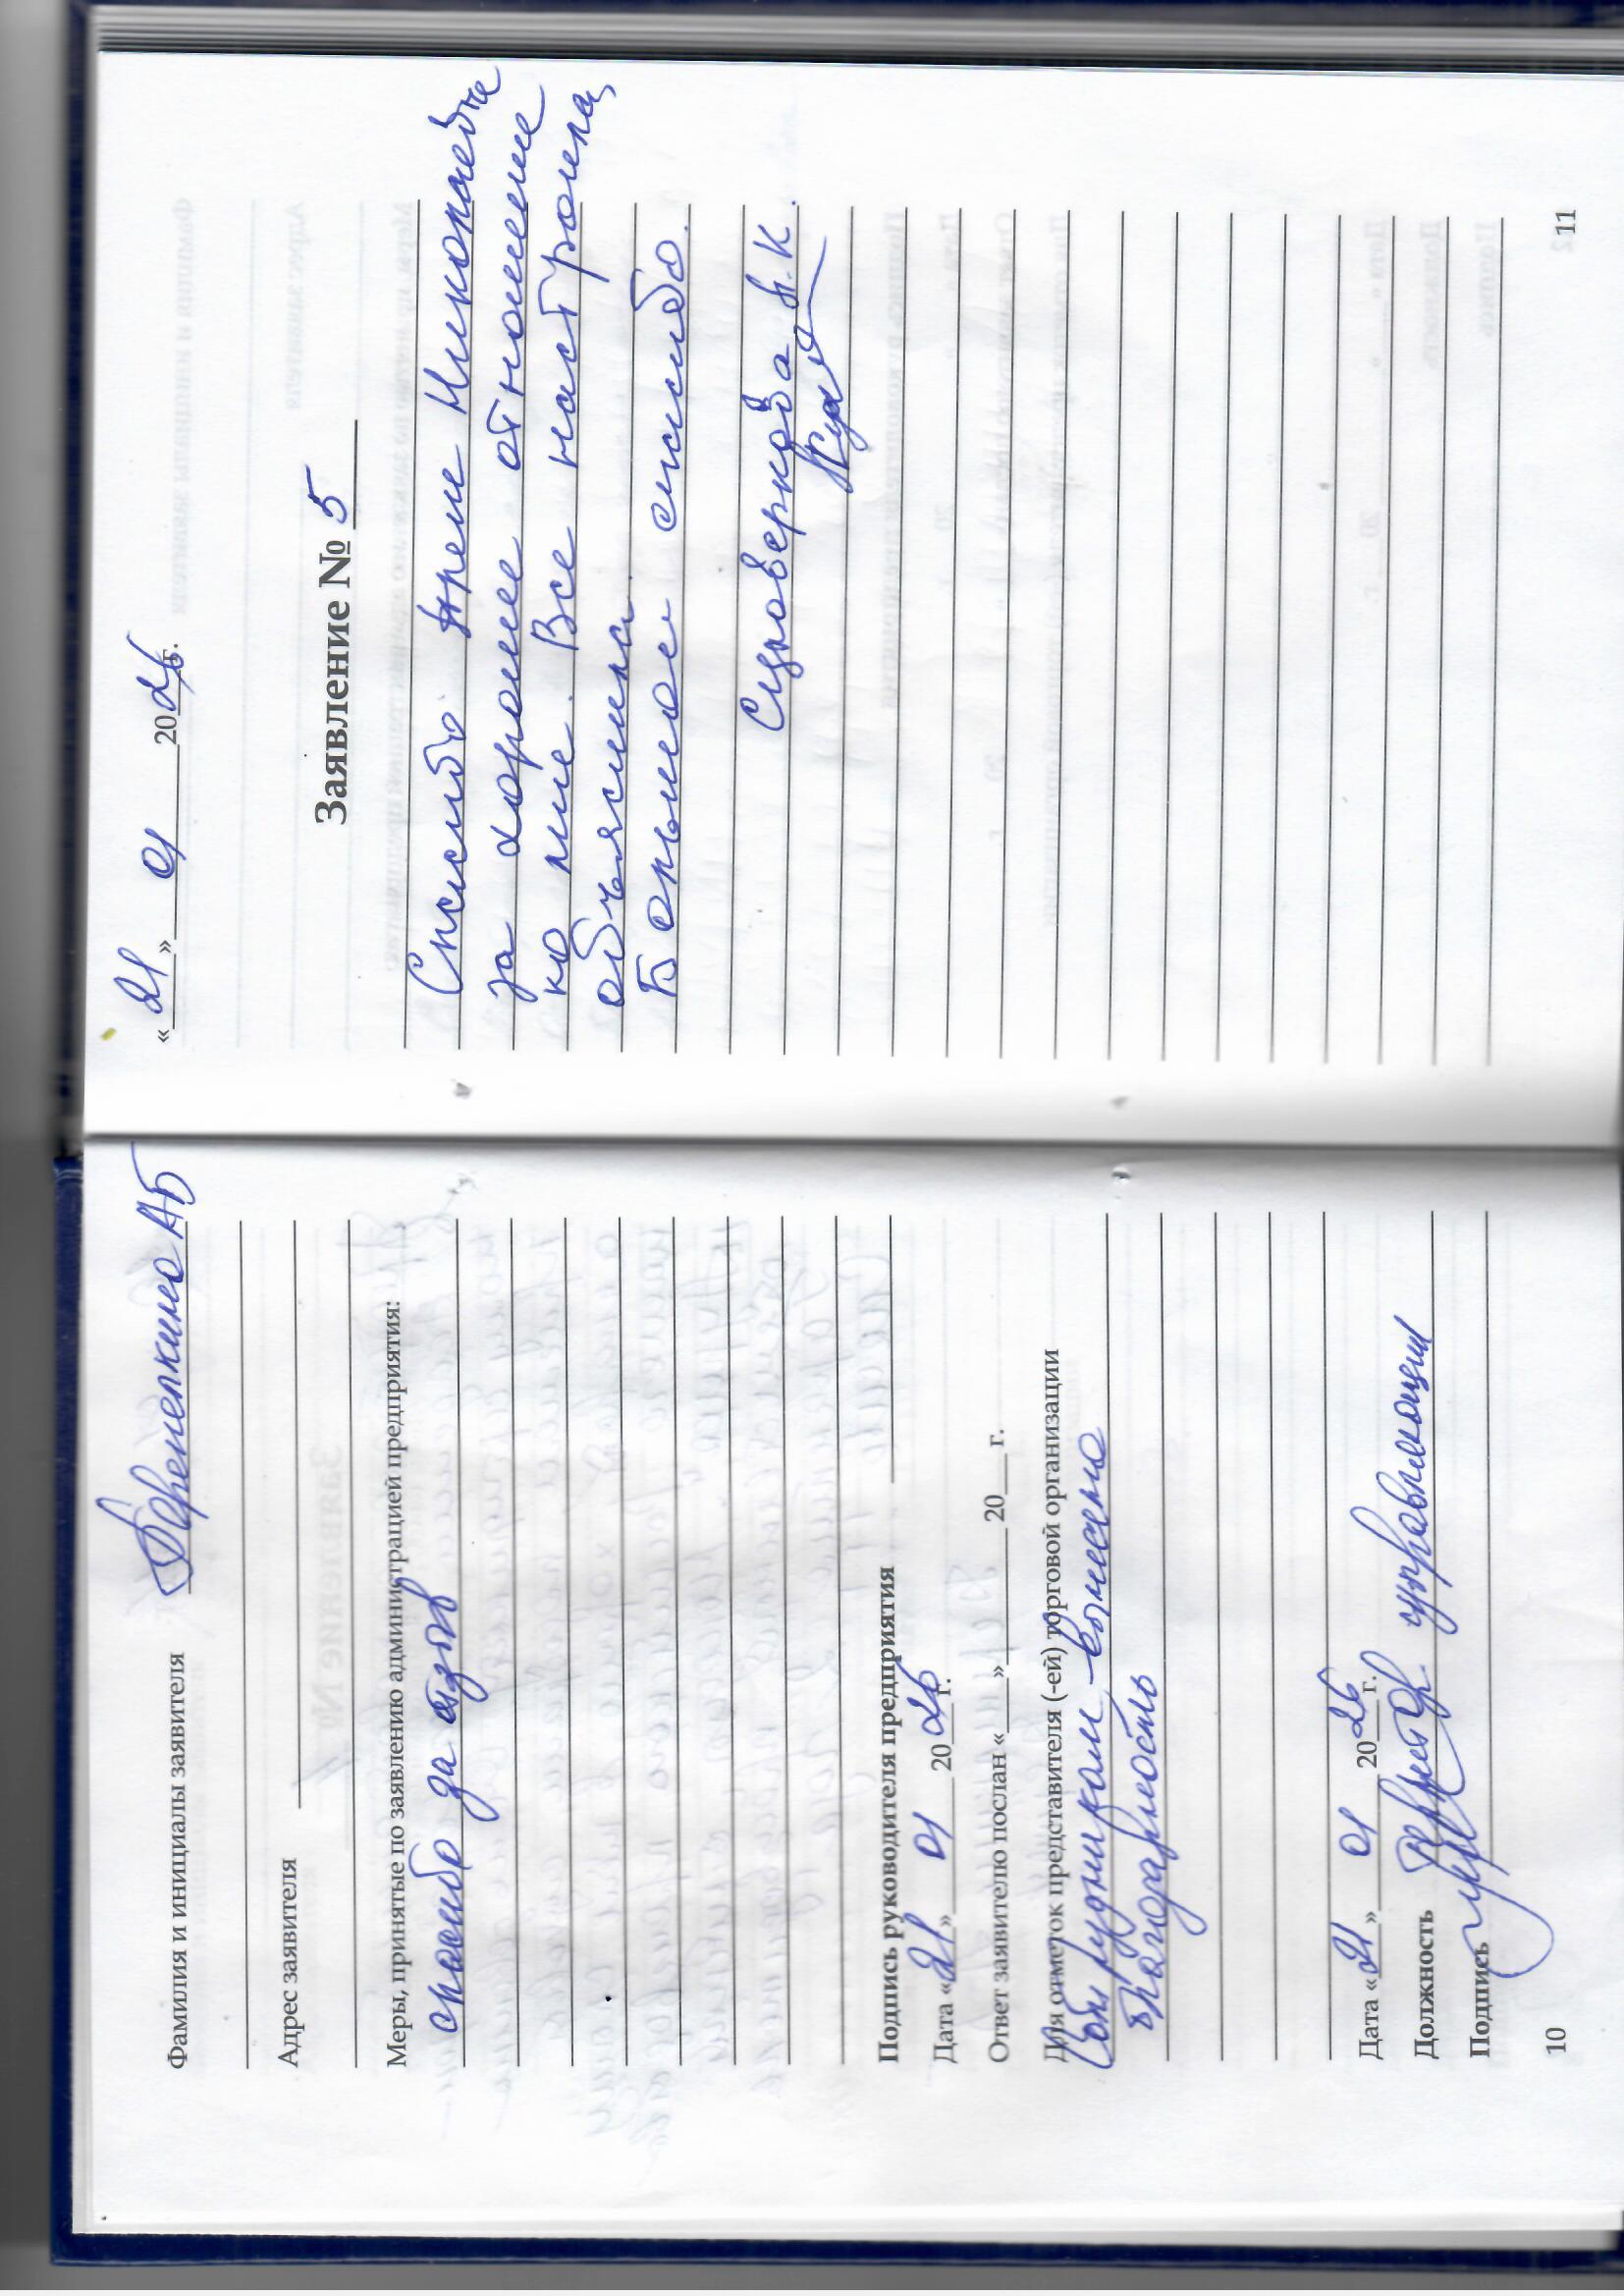 Фамилия и инициалы заявителя
Адрес заявителя
Меры, принятые по заявлению администрацией предприятия:
спасибо за отзыв
Подпись руководителя предприятия
Дата «21» 01 2026 г.
Ответ заявителю послан «___» ______ 20___ г.
Для отметок представителя (-ей) торговой организации
Сотрудникам вынесена
благодарность
Дата «21» 01 2026 г.
Должность управляющий
Подпись
10
«21» 01 2026 г.
Заявление № 5
Спасибо Ирине Николаевне
за хорошее отношение
ко мне. Все настроила,
объяснила.
Большое спасибо.
Суповеркова Л.К.
11